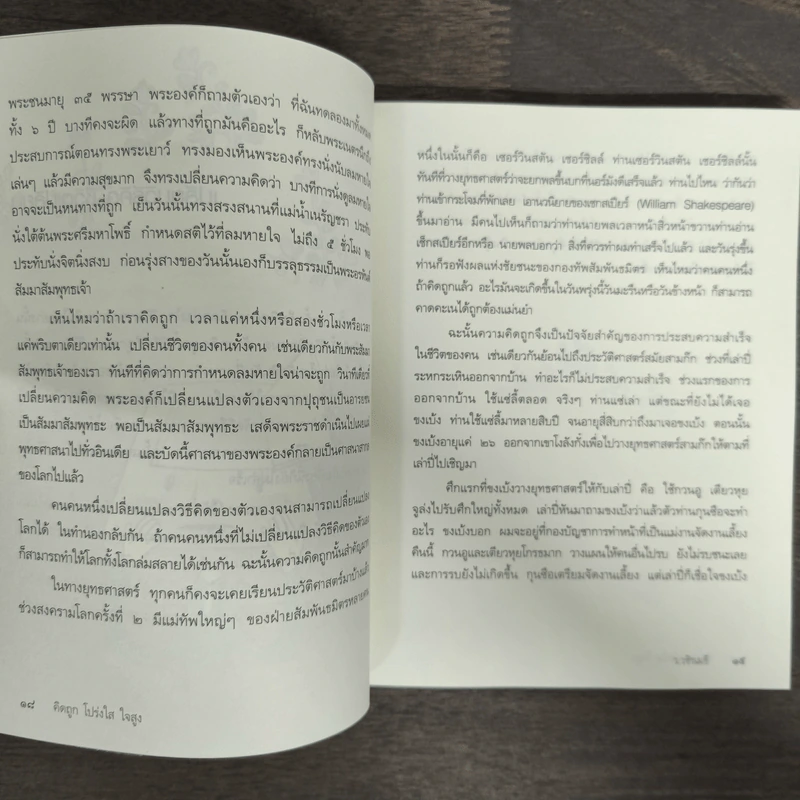 พระชนมายุ ๓๕ พรรษา พระองค์ก็ถามตัวเองว่า ที่ฉันทดลองมาทั้งหมด
ทั้ง ๖ ปี บางทีคงจะผิด แล้วทางที่ถูกมันคืออะไร ก็หลับพระเนตรนึกถึง
ประสบการณ์ตอนทรงพระเยาว์ ทรงมองเห็นพระองค์ทรงนั่งนับลมหายใจ
เล่นๆ แล้วมีความสุขมาก จึงทรงเปลี่ยนความคิดว่า บางทีการนั่งดูลมหายใจ
อาจจะเป็นหนทางที่ถูก เย็นวันนั้นทรงสรงสนานที่แม่น้ำเนรัญชรา ประทับ
นั่งใต้ต้นพระศรีมหาโพธิ์ กำหนดสติไว้ที่ลมหายใจ ไม่ถึง ๕ ชั่วโมง
ประทับนั่งจิตนิ่งสงบ ก่อนรุ่งสางของวันนั้นเองก็บรรลุธรรมเป็นพระอรหันต์
สัมมาสัมพุทธเจ้า
เห็นไหมว่าถ้าเราคิดถูก เวลาแค่หนึ่งหรือสองชั่วโมงหรือเวลา
แค่พริบตาเดียวเท่านั้น เปลี่ยนชีวิตของคนทั้งคน เช่นเดียวกันกับพระสัมมา
สัมพุทธเจ้าของเรา ทันทีที่คิดว่าการกำหนดลมหายใจน่าจะถูก วินาทีเดียวที่
เปลี่ยนความคิด พระองค์ก็เปลี่ยนแปลงตัวเองจากปุถุชนเป็นอารยชน
เป็นสัมมาสัมพุทธะ พอเป็นสัมมาสัมพุทธะ เสด็จพระราชดำเนินไปเผยแผ่
พุทธศาสนาไปทั่วอินเดีย และบัดนี้ศาสนาของพระองค์กลายเป็นศาสนาสากล
ของโลกไปแล้ว
คนคนหนึ่งเปลี่ยนแปลงวิธีคิดของตัวเองจนสามารถเปลี่ยนแปลง
โลกได้ ในทำนองกลับกัน ถ้าคนคนหนึ่งที่ไม่เปลี่ยนแปลงวิธีคิดของตัวเอง
ก็สามารถทำให้โลกทั้งโลกล่มสลายได้เช่นกัน ฉะนั้นความคิดถูกนั้นสำคัญมาก
ในทางยุทธศาสตร์ ทุกคนก็คงจะเคยเรียนประวัติศาสตร์มาบ้างแล้ว
ช่วงสงครามโลกครั้งที่ ๒ มีแม่ทัพใหญ่ๆ ของฝ่ายสัมพันธมิตรหลายคน
๑๘ คิดถูก โปร่งใส ใจสูง
หนึ่งในนั้นก็คือ เซอร์วินสตัน เชอร์ชิลล์ ท่านเซอร์วินสตัน เชอร์ชิลล์นั้น
ทันทีที่วางยุทธศาสตร์ว่าจะยกพลขึ้นบกที่นอร์มังดีเสร็จแล้ว ท่านไปไหน ว่ากันว่า
ท่านเข้ากระโจมที่พักเลย เอานวนิยายของเชกสเปียร์ (William Shakespeare)
ขึ้นมาอ่าน มีคนไปเห็นก็ถามว่าท่านนายพลเวลาหน้าสิ่วหน้าขวานท่านอ่าน
เช็กสเปียร์อีกหรือ นายพลบอกว่า สิ่งที่ควรทำผมทำเสร็จไปแล้ว และวันรุ่งขึ้น
ท่านก็รอฟังผลแห่งชัยชนะของกองทัพสัมพันธมิตร เห็นไหมว่าคนคนหนึ่ง
ถ้าคิดถูกแล้ว อะไรมันจะเกิดขึ้นในวันพรุ่งนี้วันมะรืนหรือวันข้างหน้า ก็สามารถ
คาดคะเนได้ถูกต้องแม่นยำ
ฉะนั้นความคิดถูกจึงเป็นปัจจัยสำคัญของการประสบความสำเร็จ
ในชีวิตของคน เช่นเดียวกันย้อนไปถึงประวัติศาสตร์สมัยสามก๊ก ช่วงที่เล่าปี่
ระหกระเหินออกจากบ้าน ทำอะไรก็ไม่ประสบความสำเร็จ ช่วงแรกของการ
ออกจากบ้าน ใช้แซ่ลี้ตลอด จริงๆ ท่านแซ่เล่า แต่ขณะที่ยังไม่ได้เจอ
ขงเบ้ง ท่านใช้แซ่ลี้มาหลายสิบปี จนอายุสี่สิบกว่าถึงมาเจอขงเบ้ง ตอนนั้น
ขงเบ้งอายุแค่ ๒๖ ออกจากเขาโงลังกั๋งเพื่อไปวางยุทธศาสตร์สามก๊กให้ตามที่
เล่าปี่ไปเชิญมา
ศึกแรกที่ขงเบ้งวางยุทธศาสตร์ให้กับเล่าปี่ คือ ใช้กวนอู เตียวหุย
จูล่งไปรับศึกใหญ่ทั้งหมด เล่าปี่หันมาถามขงเบ้งว่าแล้วตัวท่านกุนซือจะทำ
อะไร ขงเบ้งบอก ผมจะอยู่ที่กองบัญชาการทำหน้าที่เป็นแม่งานจัดงานเลี้ยง
คืนนี้ กวนอูและเตียวหุยโกรธมาก วางแผนให้คนอื่นไปรบ ยังไม่รบชนะเลย
และการรบยังไม่เกิดขึ้น กุนซือเตรียมจัดงานเลี้ยง แต่เล่าปี่ก็เชื่อใจขงเบ้ง
ว.วชิรเมธี ๑๙